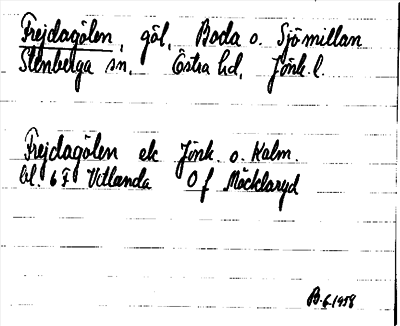 Frejdagölen, göl, Boda o. Sjömillan
Stenberga sn, Östra hd, Jönk. l.
Frejdagölen ek Jönk. o. Kalm.
bl. 6 F Vetlanda Of Möcklaryd
B. 6. 1958